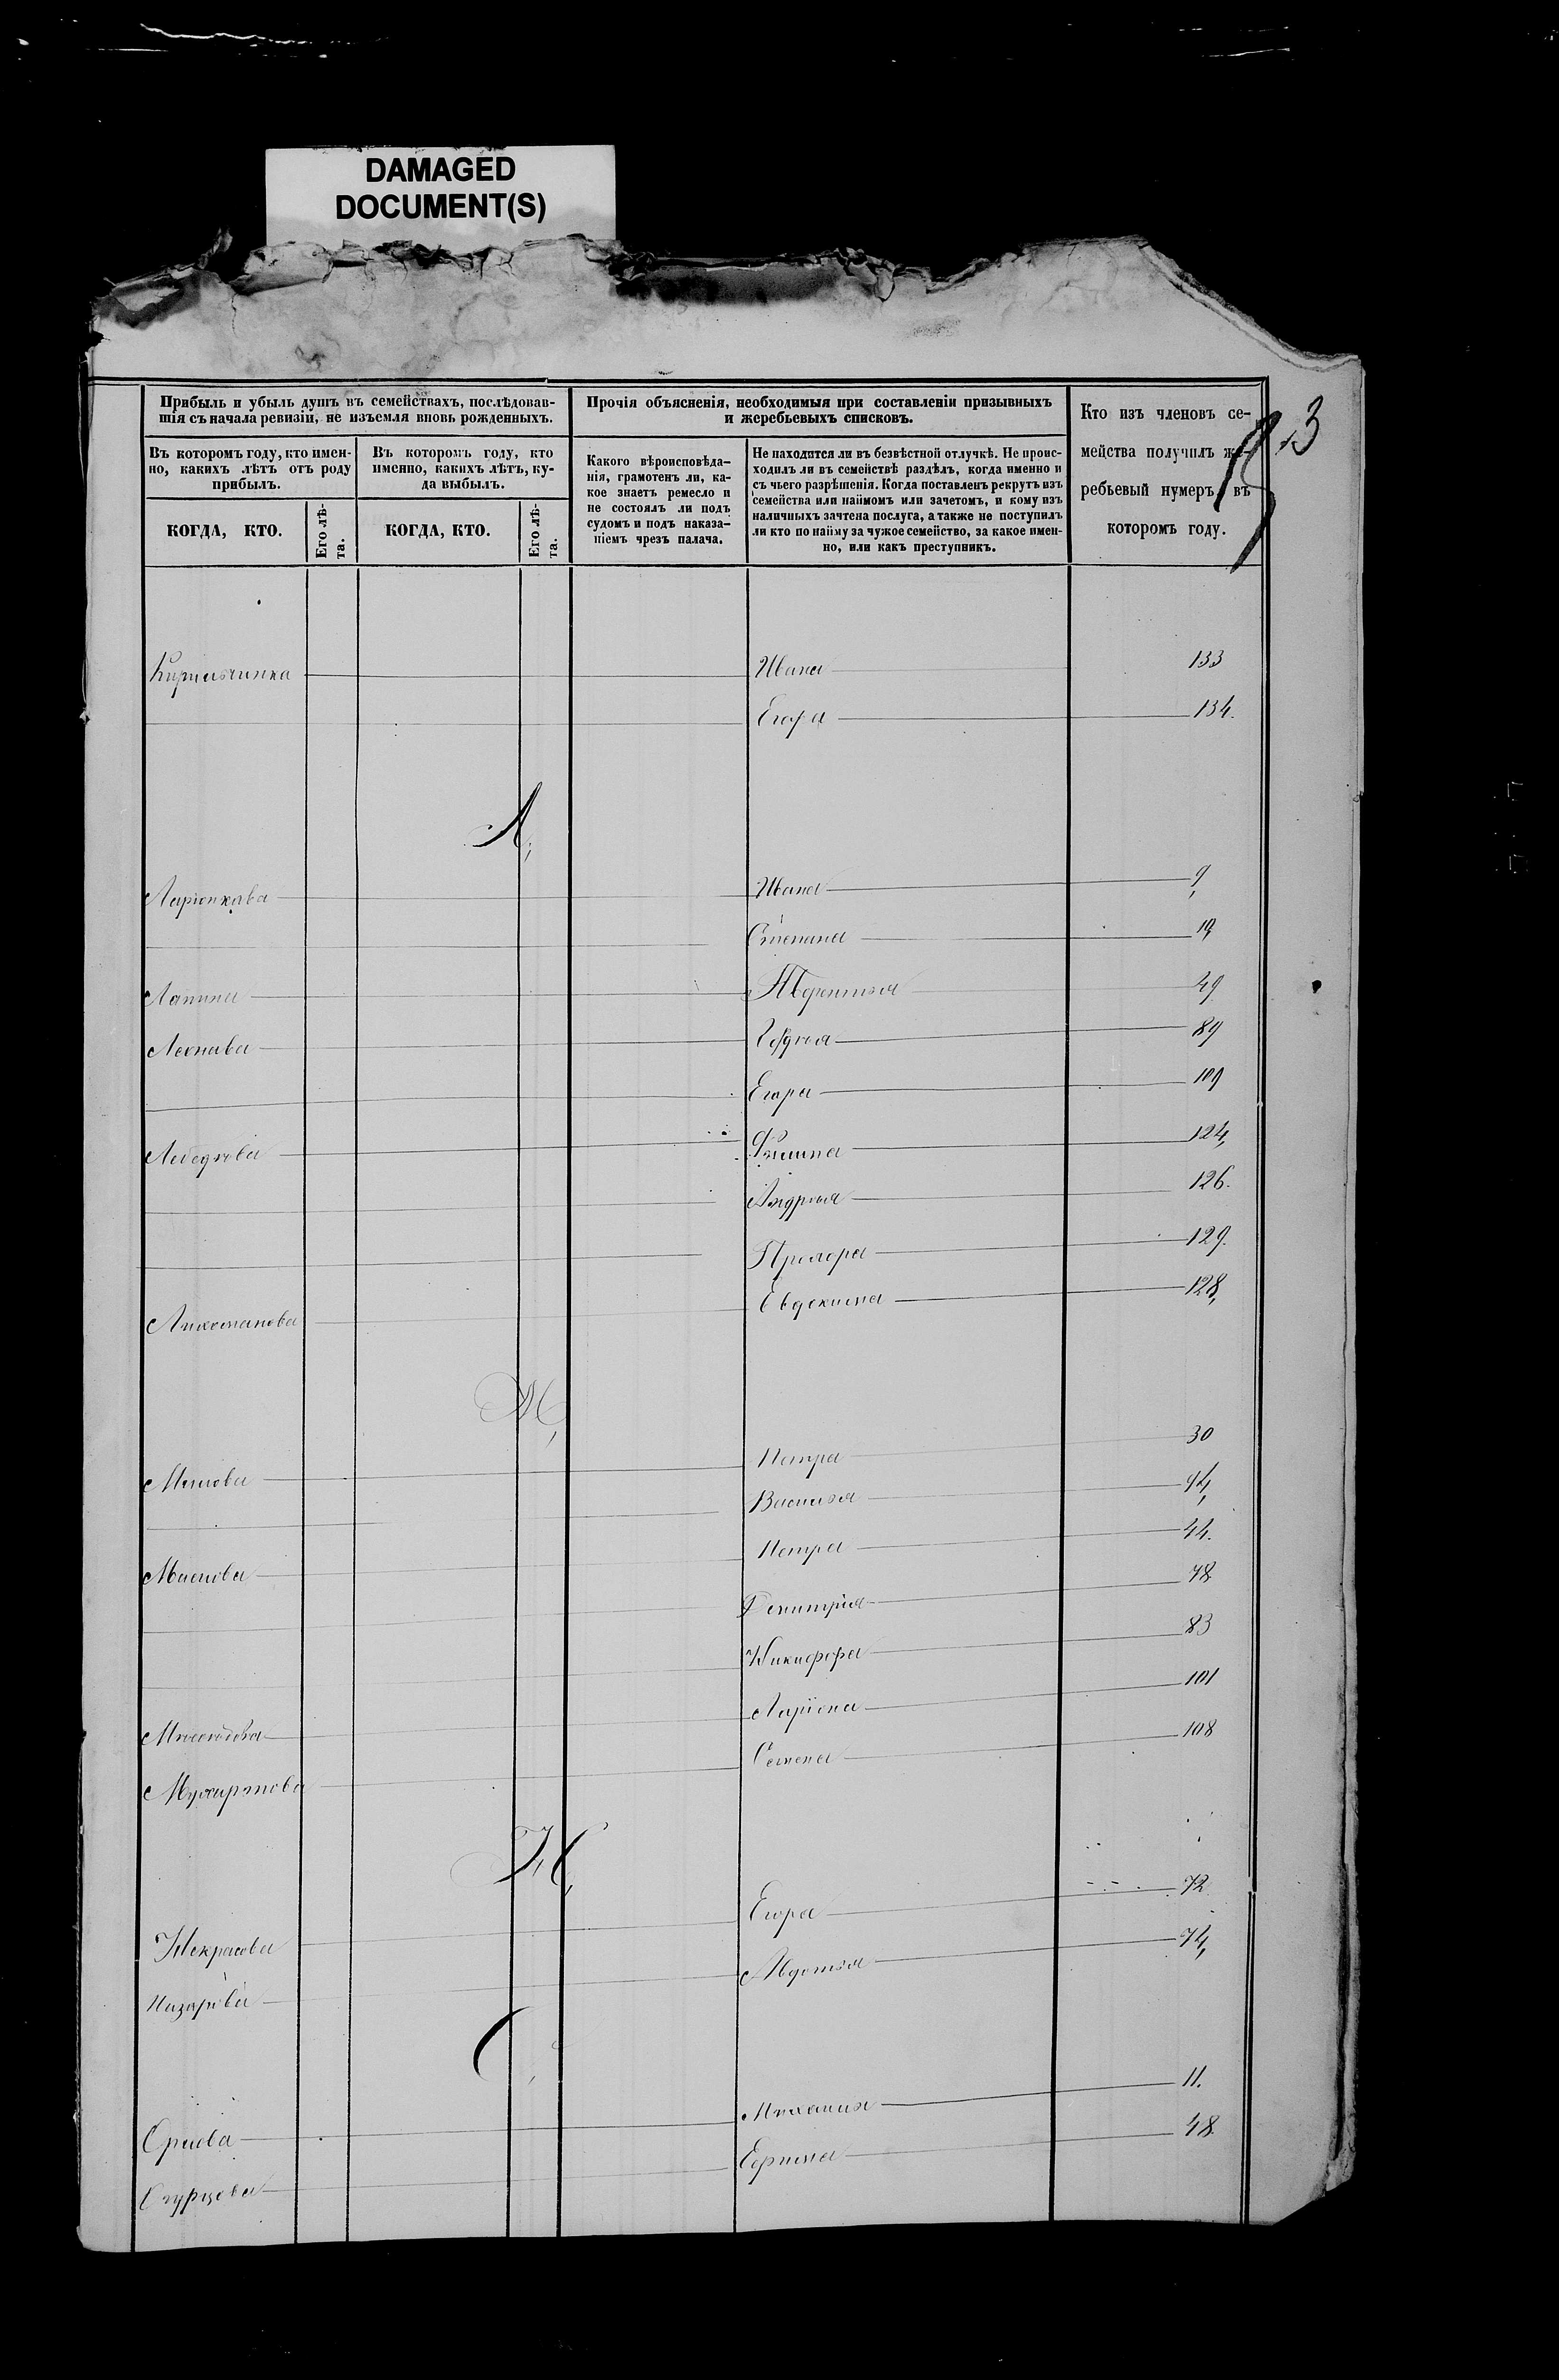 DAMAGED
DOCUMENT(S)
Прибыль и убыль душъ въ семействахъ, послѣдовав-
шія съ начала ревизіи, не изъемля вновь рожденныхъ.
Въ которомъ году, кто имен-
но, какихъ лѣтъ отъ роду
прибылъ.
Въ которомъ году, кто
именно, какихъ лѣтъ, ку-
да выбылъ.
КОГДА, КТО.
Его лѣ-
та.
КОГДА, КТО.
Его лѣ-
та.
Прочія объясненія, необходимыя при составленіи призывныхъ
и жеребьевыхъ списковъ.
Какого вѣроисповѣда-
нія, грамотенъ ли, ка-
кое знаетъ ремесло и
не состоялъ ли подъ
судомъ и подъ наказа-
ніемъ чрезъ палача.
Не находится ли въ безвѣстной отлучкѣ. Не проис-
ходилъ ли въ семействѣ раздѣлъ, когда именно и
съ чьего разрѣшенія. Когда поставленъ рекрутъ изъ
семейства или наймомъ или зачетомъ, и кому изъ
наличныхъ зачтена послуга, а также не поступилъ
ли кто по найму за чужое семейство, за какое имен-
но, или какъ преступникъ.
Кто изъ членовъ се-
мейства получилъ же-
ребьевый нумеръ, въ
которомъ году.
3
Ивана 133
Егора 134.
Л,
Ларіонкова Ивана 9,
Степана 19
Лапина 49
Леонова 89
Егора 109
Лебедева 124,
Андрея 126.
Прохора 129.
Евдокима 128,
М,
Петра 30
Василья
Маслова Петра 44.
Дмитрія 78
Никифора 83
Ларіона 101
Семена 108
Н,
Некрасова Егора 72
Назарова 74,
О,
Орлова Михаила 11.
Огурцова 48